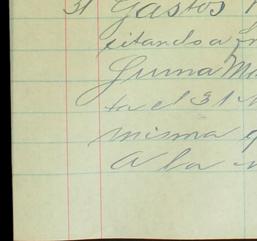 31 Gastos
citando a
Suma
ta el 31
misma
a la